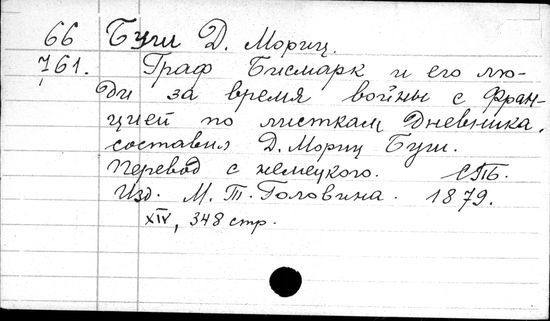 66 Буш Д. Мориц.
761. Граф Бисмарк и его лю-
ди за время войны с Фран-
цией по листкам Дневника.
составил Д. Мориц Буш.
Перевод с немецкого. СПБ.
Изд. М. Т. Головина. 1879.
XIV, 348 стр.